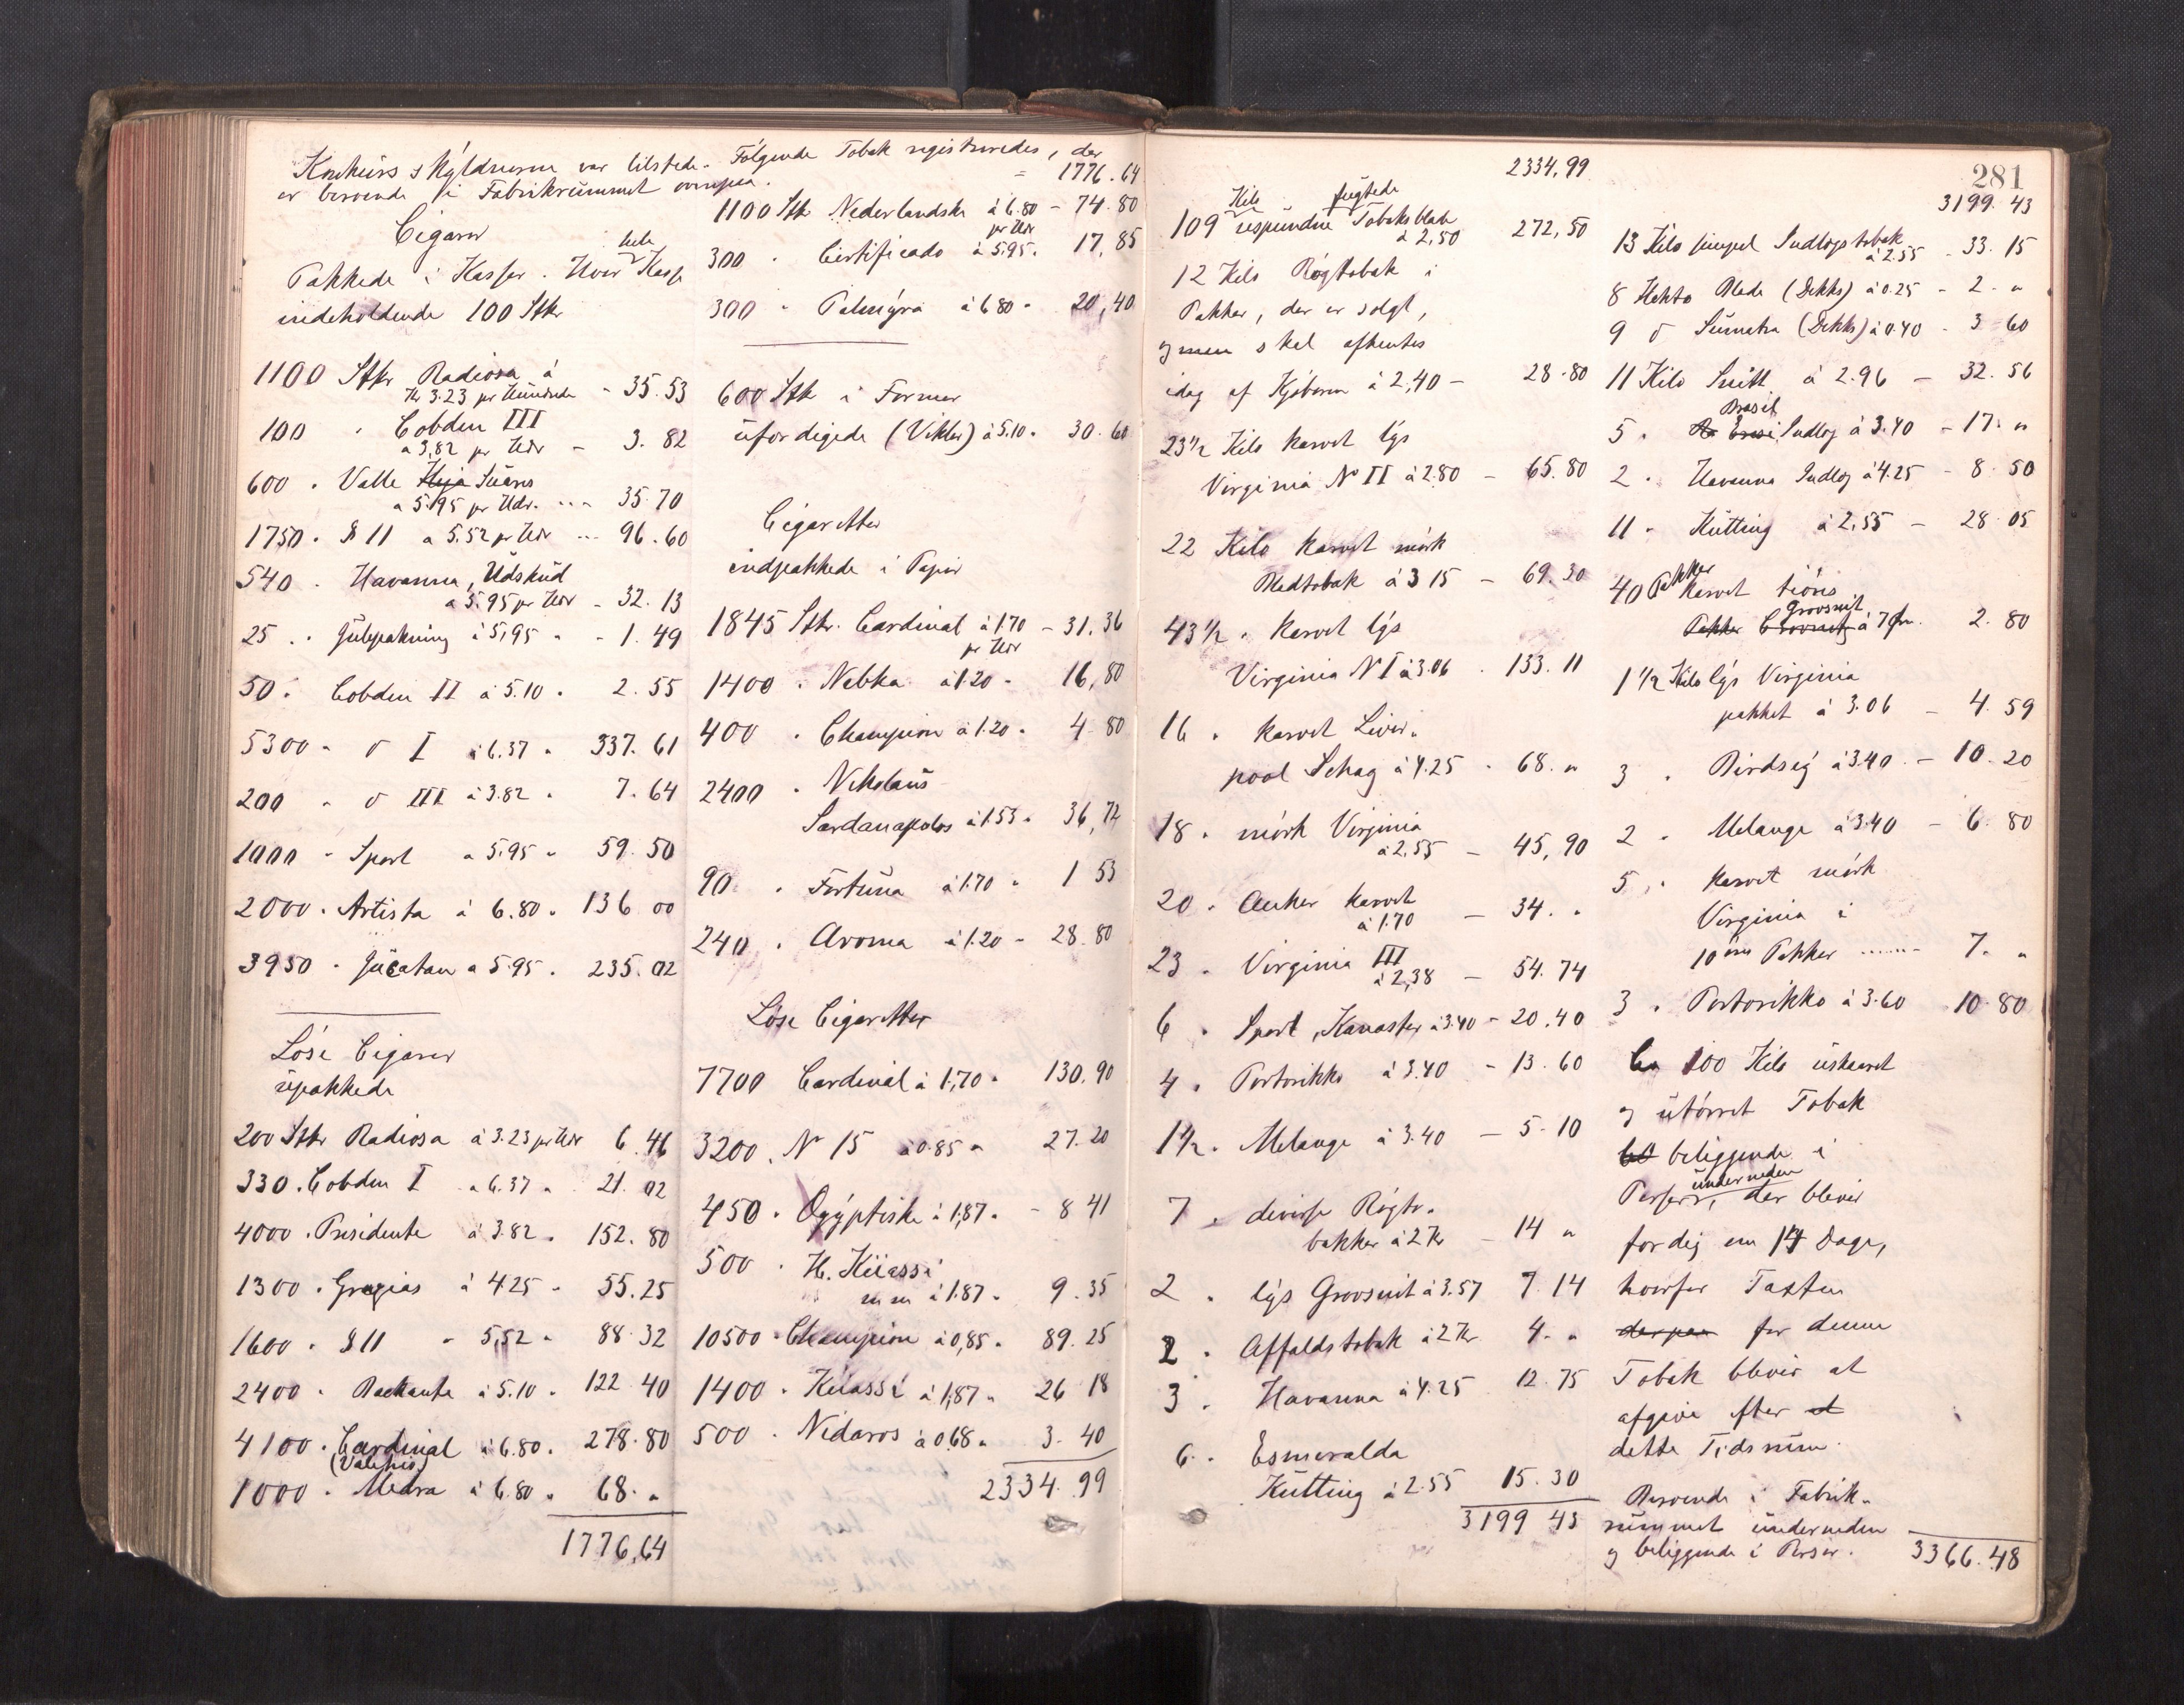 Konkursskyldnerne var tilstede. Følgende Tobak registreredes, der
er beroende i Fabrikrummet ovenpaa.
Cigarer
Pakkede i Kasser. Hver hele Kasse
indeholdende 100 Stkr
1100 Stkr Radiosa á
Kr 3.23 pr Hundrede - 35.53
100 " Cobden III
a 3,82 pr Hdr - 3.82
600 " Valle Hija Suares
a 5.95 pr Hdr. --- 35.70
1750 " § 11 a 5.52 pr Hdr --- 96.60
540 " Havanna, Udskud
a 5.95 pr Hdr - 32.13
25 " Julepakning á 5,95 " - 1.49
50 " Cobden II á 5.10 " 2.55
5300 " do I á 6.37 " 337.61
200 " do III á 3.82 " 7.64
1000 " Sport a 5.95 " 59.50
2000 " Artista á 6.80 " 136 00
3950 " Jucatan a 5.95 " 235.02
Løse Cigarer
upakkede
200 Stkr Radiosa á 3.23 pr Hdr 6.46
330 " Cobden I a 6.37 " 21.02
4000 " Presidente á 3.82 " 152.80
1300 " Gragias á 4.25 " 55.25
1600 " § 11 " 5,52 " 88.32
2400 " Backante á 5.10 " 122.40
4100 " Cardinal á 6.80 " 278.80
1000 " Medra á 6.80 " 68. "
1776,64
1776.64
1100 Stk Nederlandske á 6.80 - 74.80
pr Hdr
300 " Certificado á 5.95 " 17,85
300 " Palmyra á 6 80 " 20,40
600 Stk i Former
ufordigede (Vikler) á 5.10 " 30.60
Cigaretter
indpakkede i Papir
1845 Stkr. Cardinal á 1.70 - 31.36
pr Hdr
1400 " Nebka á 1.20 " 16,80
400 " Champion á 1.20 " 4.80
2400 " Nikolaus
Sardanapolos á 1.53 " 36,72
90 " Fortuna á 1.70 " 1 53
240 " Aroma á 1.20 - 28.80
Løse Cigaretter
7700 Cardinal á 1,70 " 130.90
3200 " No 15 á 0.85 " 27.20
450 " Ægyptiske á 1,87 " - 8 41
500 " H. Kiassi
m m á 1.87 " 9.35
10500 " Champion á 0,85 " 89.25
1400 " Kiassi á 1,87 " 26 18
500 " Nidaros á 0,68 " 3.40
2334.99
2334,99
109 Kilo uspundne fugtede Tobaksblade
á 2,50 272,50
12 Kilo Røgtobak i
Pakker, der er solgt,
og men skal afhentes
idag af Kjøberen á 2,40 - 28.80
23 1/2 Kilo karvet lys
Virginia No II á 2.80 - 65.80
22 Kilo karvet mørk
Bladtobak á 3 15 - 69.30
43 1/2 " karvet lys
Virginia No I á 3.06 . 133.11
16 " karvet Liver-
pool Schag á 4.25 " 68. "
18 " mørk Virginia
á 2,55 - 45,90
20 " Anker karvet
á 1.70 - 34. "
23 " Virginia III
á 2,38 - 54.74
6 " Sport, Kanaster á 3.40 - 20.40
4 " Portorikko á 3.40 - 13.60
1 1/2 " Melange á 3.40 - 5.10
7 " diverse Røgto-
bakker á 2 Kr - 14 "
2 " lys Grovsnit á 3.57 7.14
2 " Affaldstobak á 2 Kr 4. "
3 " Havanna á 4.25 12.75
6 " Esmeralda
Kutting á 2.55 15.30
3199 43
281
3199.43
13 Kilo simpel Indlægstobak
á 2.55 - 33.15
8 Hekto Blade (Dekks) á 0.25 - 2. "
9 do Sumatra (Dekks) á 0.40 - 3 60
11 Kilo Snitt á 2.96 - 32.56
5 " Brasil Indlæg á 3.40 - 17. "
2 " Havanna Indlæg á 4.25 - 8.50
11 " Kutting á 2.55 - 28.05
40 Pakker karvet tiøres
Pakker Grovsnit á 7 Øre. 2.80
1 1/2 Kilo lys Virginia
pakket á 3.06 - 4.59
3 " Birdsey á 3.40 - 10.20
2 " Melange á 3.40 - 6.80
5 " karvet mørk
Virginia i
10 øres Pakker ------- 7. "
3 " Portorikko á 3.60 10.80
Ca 100 Kilo uskaaret
og utørret Tobak
beliggende i
Perser underneden, der bliver
ferdig om 14 Dage,
hvorfor Taxten
derpaa for denne
Tobak bliver at
afgive efter et
dette Tidsrum.
Beroende i Fabrik-
rummet underneden
og beliggende i Perser. 3366.48